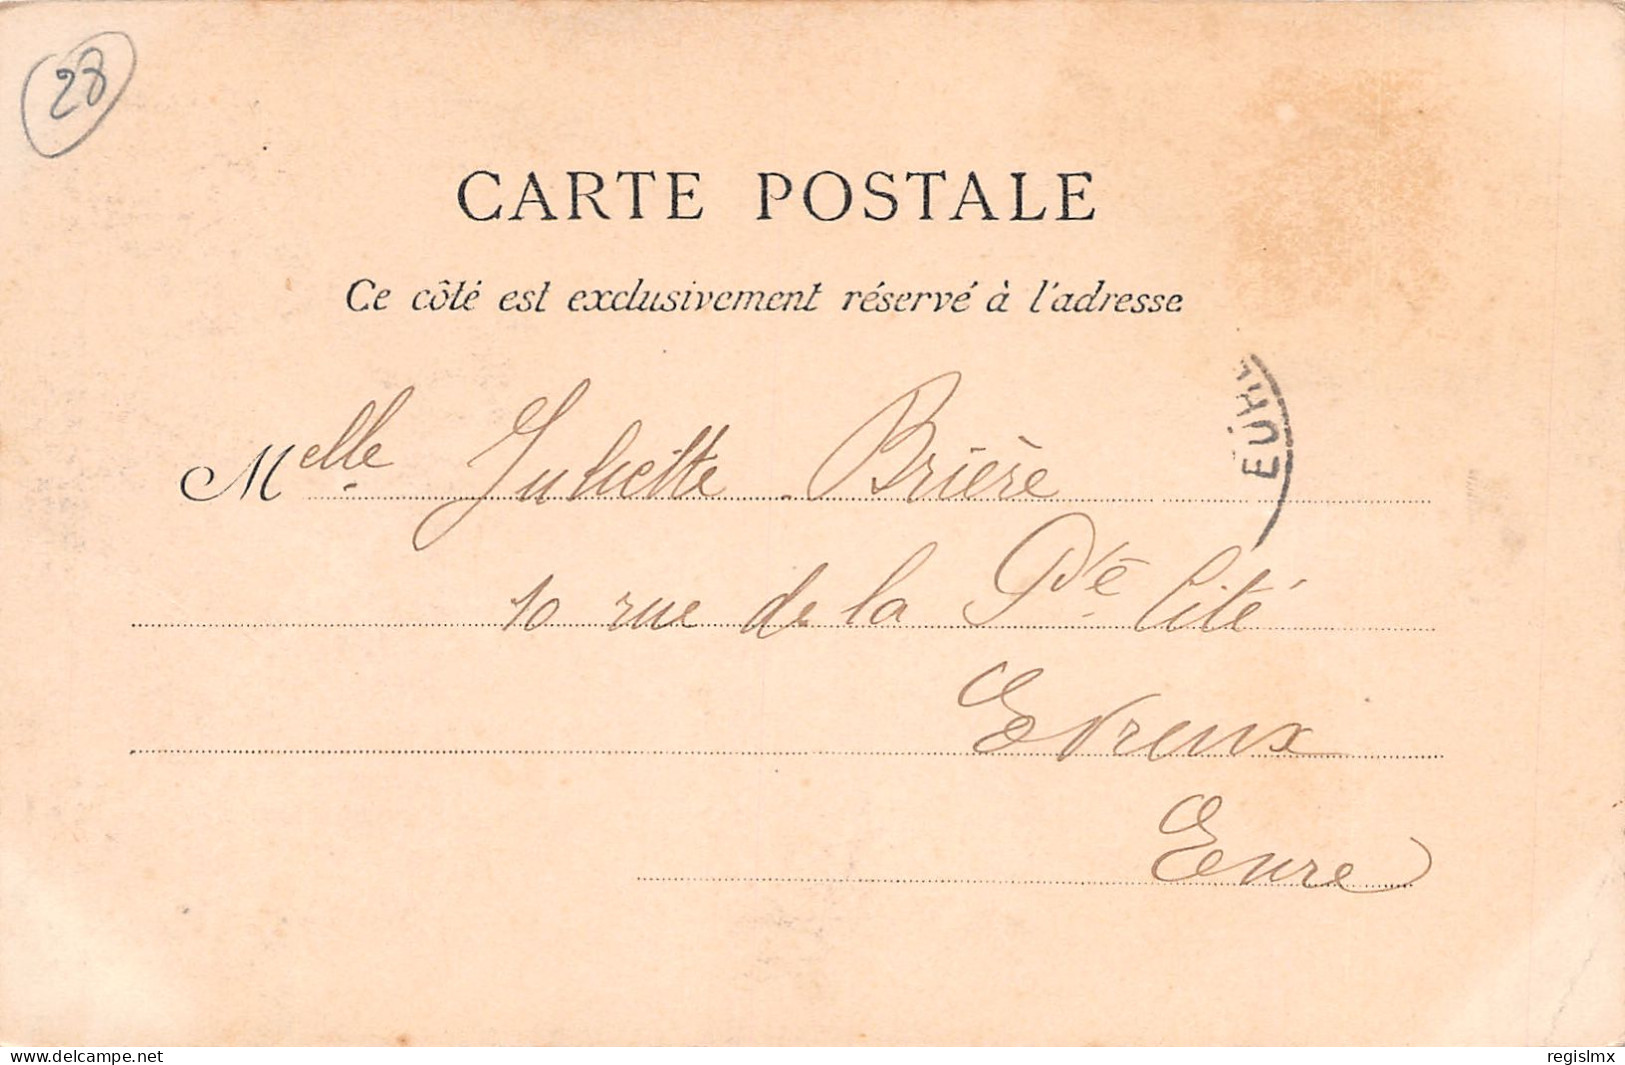 28
CARTE POSTALE
Ce côté est exclusivement réservé à l'adresse
Melle Juliette Brière
10 rue de la Pte Cité
Evreux
Eure
delcampe.net
regislmx